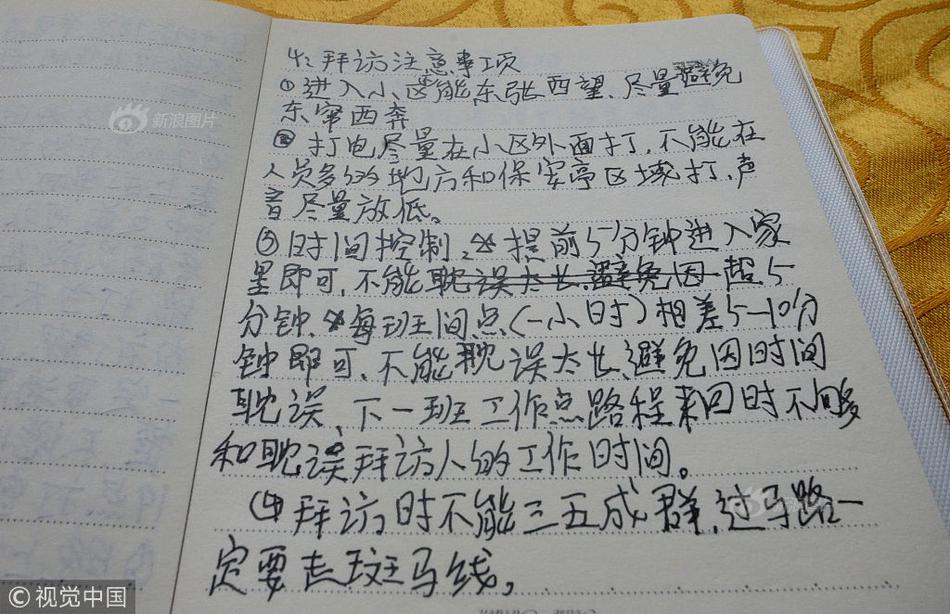 4: 拜访注意事项
①进入小区能东张西望、尽量避免
东窜西奔
② 打电尽量在小区外面打,不能在
人员多的地方和保安亭区域打,声
音尽量放低。
③ 时间控制、提前5分钟进入家
里即可、不能耽误太长、避免因超5
分钟、每班工间点(一小时)相差5-10分
钟即可、不能耽误太长、避免因时间
耽误、下一班工作点路程来回时不够
和耽误拜访人的工作时间。
④拜访时不能三五成群,过马路一
定要走斑马线。
新浪图片
新浪图片
©视觉中国